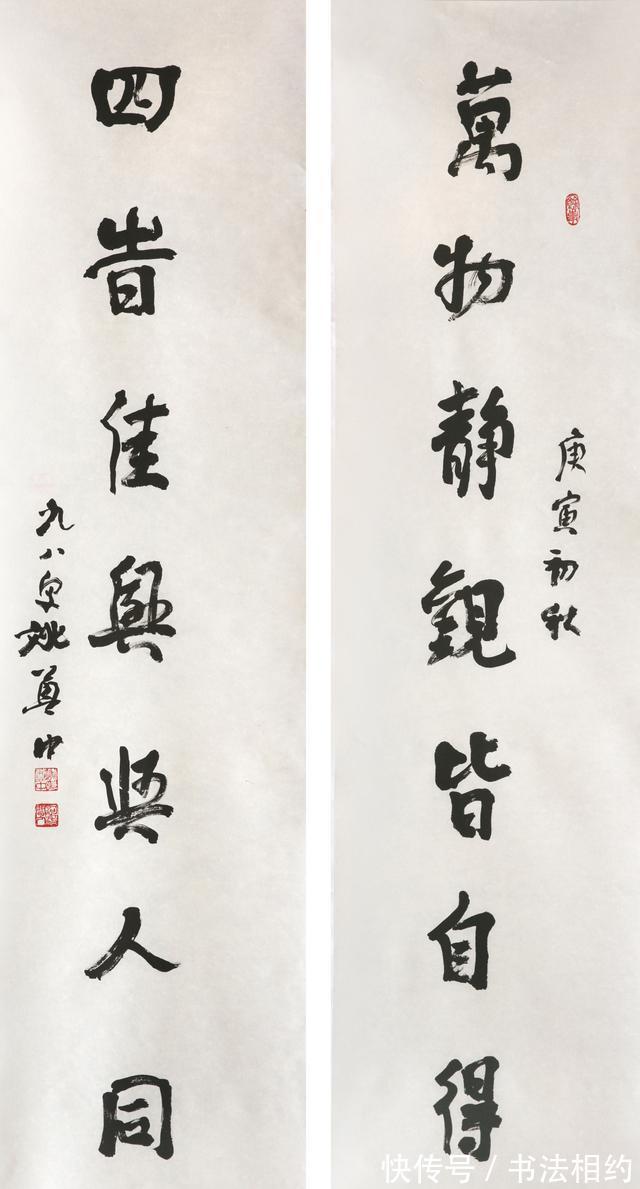 萬物靜觀皆自得
庚寅初秋
四旹佳興與人同
九八叟姚奠中
快传号/书法相约